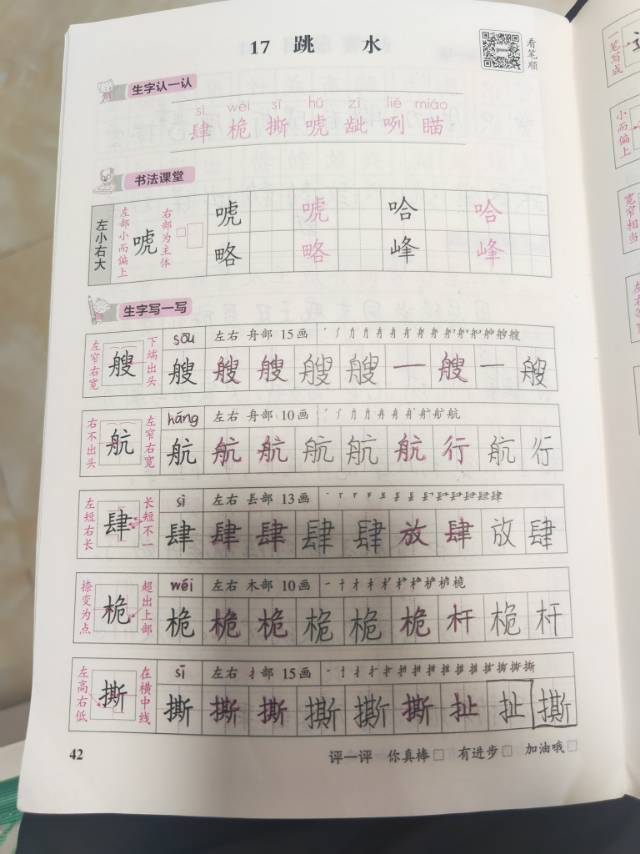 17 跳 水
看笔顺
生字认一认
sì wéi sī hǔ zī liě miáo
肆 桅 撕 唬 龇 咧 瞄
书法课堂
左小右大
左部小而偏上 唬 右部为主体
唬 唬 哈 哈
略 略 峰 峰
生字写一写
左窄右宽 艘 下端出头
sōu 左右 舟部 15画
艘 艘 艘 艘 艘 一 艘 一 艘
右不出头 航 左窄右宽
háng 左右 舟部 10画
航 航 航 航 航 航 行 航 行
左短右长 肆 长短不一
sì 左右 镸部 13画
肆 肆 肆 肆 肆 放 肆 放 肆
捺变为点 桅 超出上部
wéi 左右 木部 10画
桅 桅 桅 桅 桅 桅 杆 桅 杆
左高右低 撕 在横中线
sī 左右 扌部 15画
撕 撕 撕 撕 撕 撕 扯 扯 撕
42 评一评 你真棒 有进步 加油哦
一笔写成
小而偏上
宽窄相当